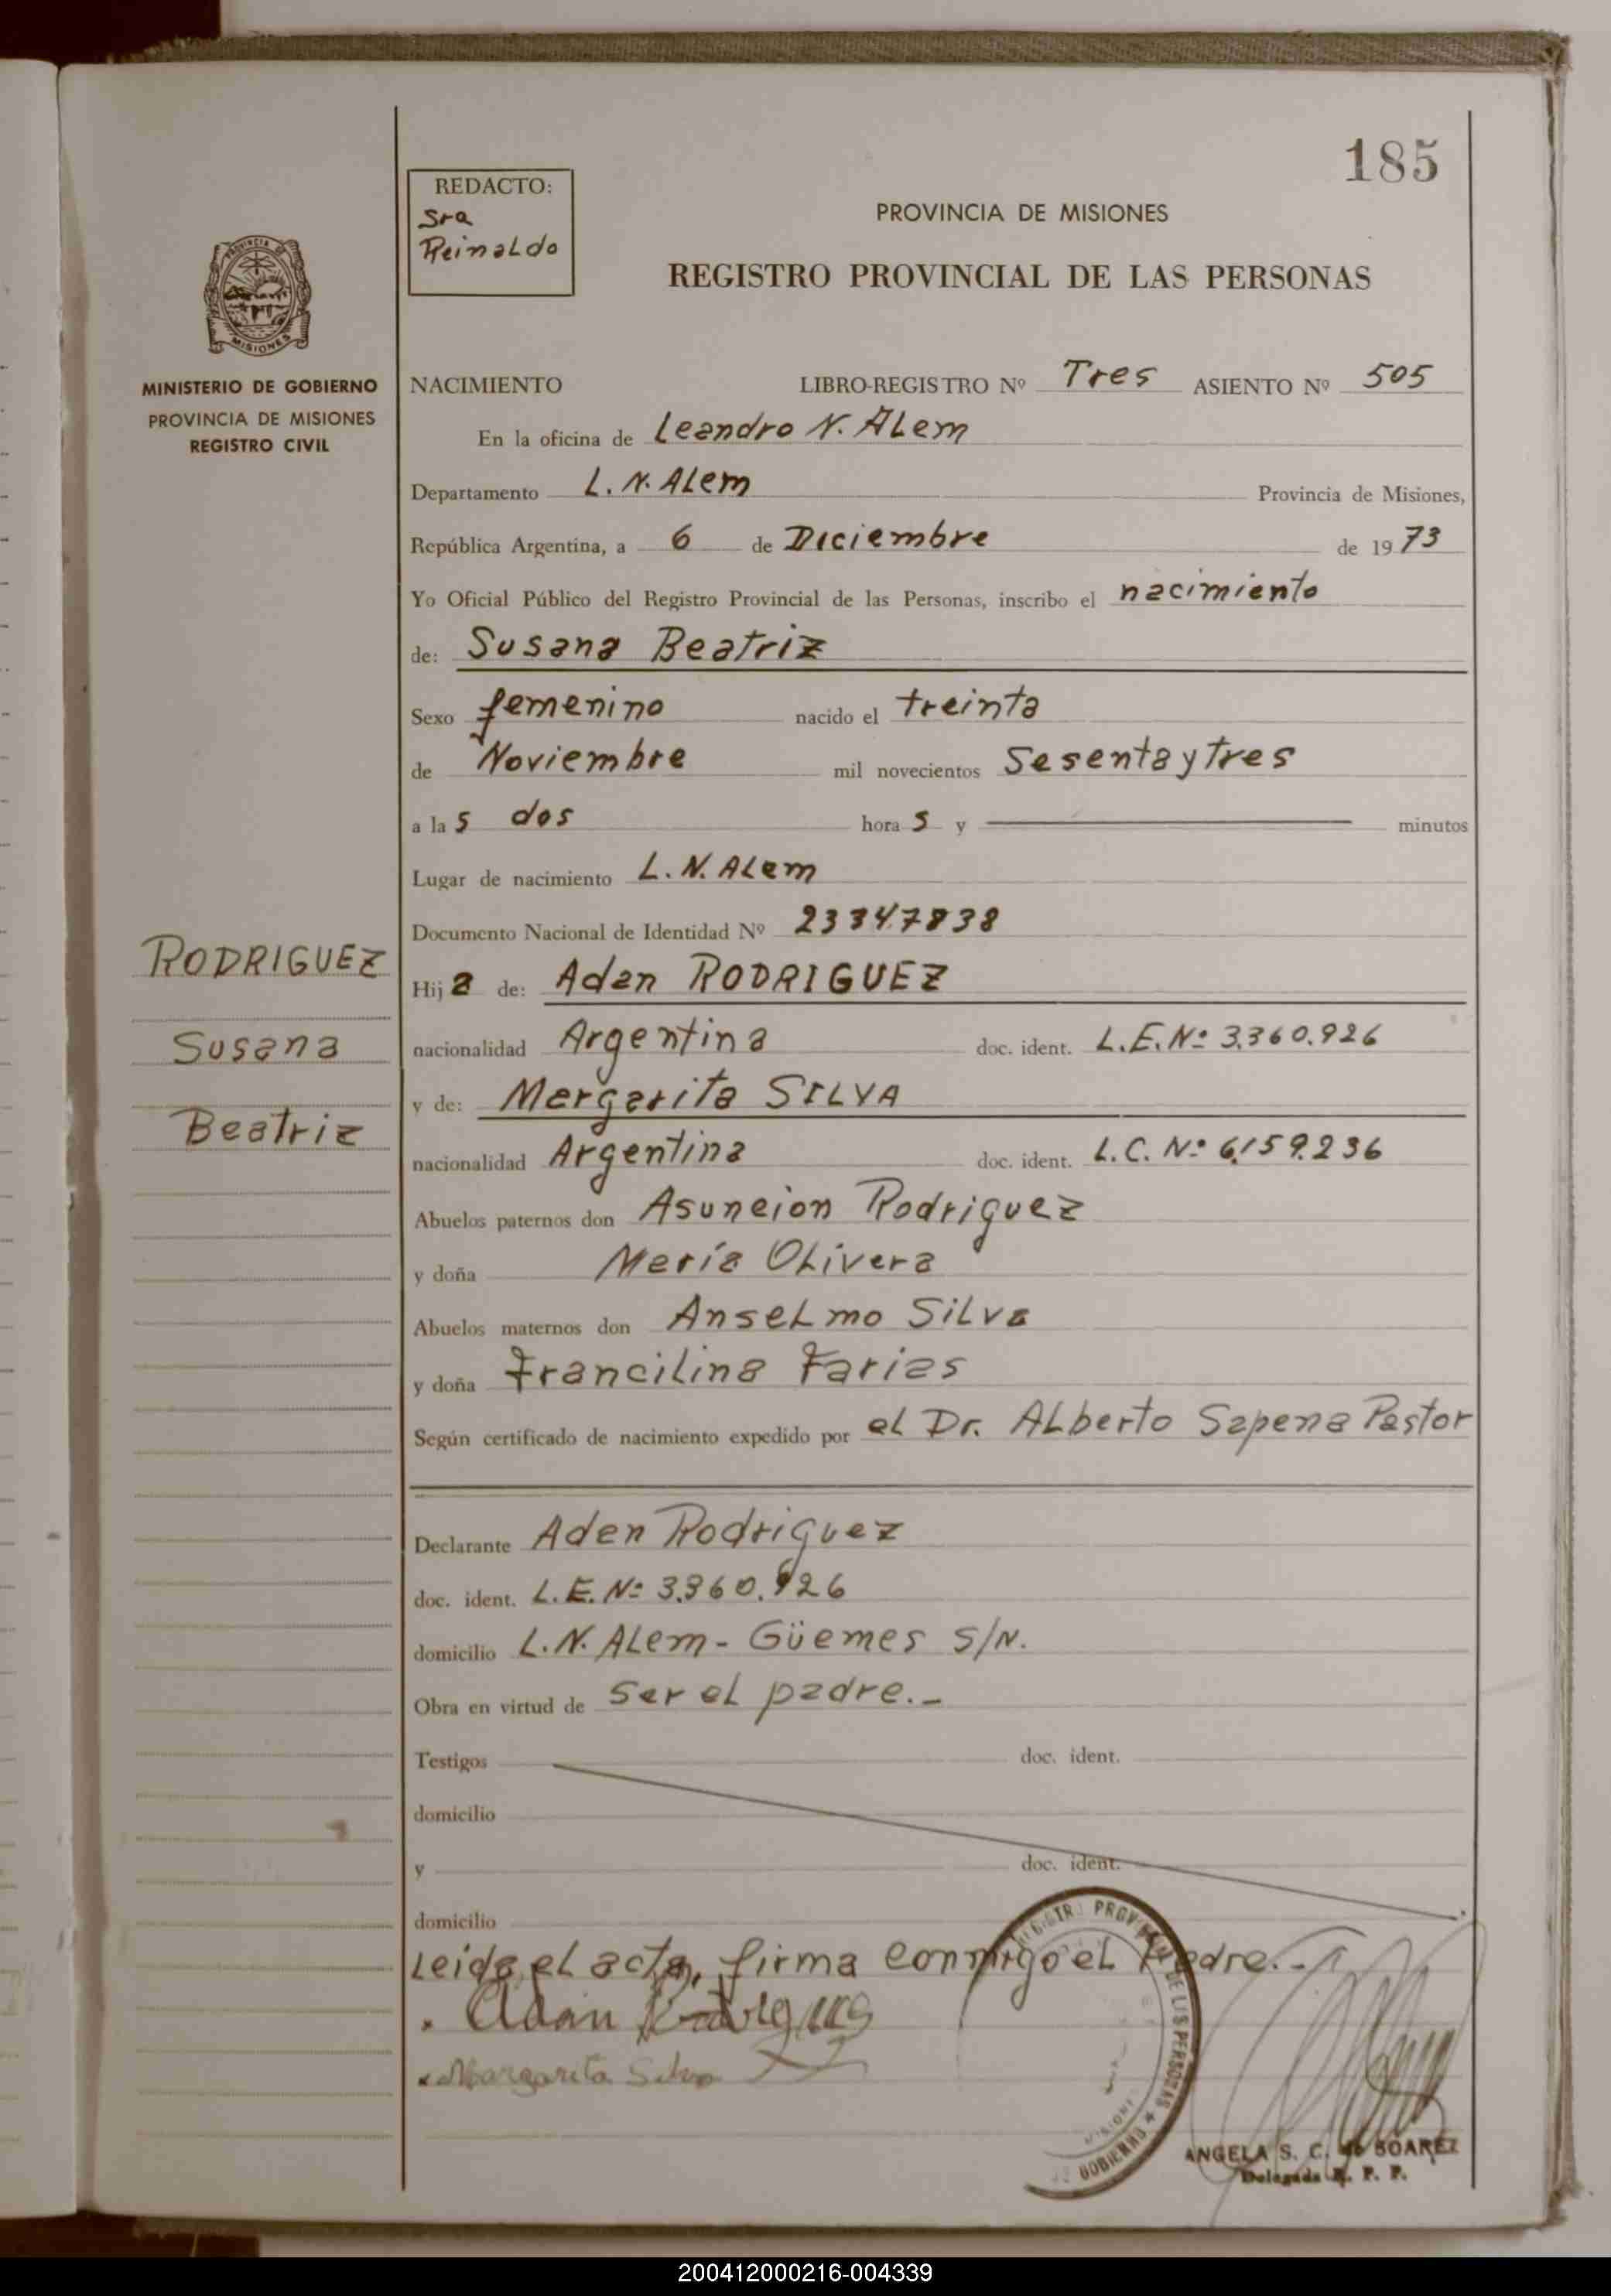 185
REDACTO:
Sra
Reinaldo
PROVINCIA DE MISIONES
REGISTRO PROVINCIAL DE LAS PERSONAS
MISIONES
MINISTERIO DE GOBIERNO
PROVINCIA DE MISIONES
REGISTRO CIVIL
NACIMIENTO LIBRO-REGISTRO Nº Tres ASIENTO Nº 505
En la oficina de Leandro N. ALem
Departamento L. N. ALem Provincia de Misiones,
República Argentina, a 6 de Diciembre de 19 73
Yo Oficial Público del Registro Provincial de las Personas, inscribo el nacimiento
de: Susana Beatriz
Sexo femenino nacido el treinta
de Noviembre mil novecientos Sesenta y Tres
a la s dos hora s y minutos
Lugar de nacimiento L. N. ALem
Documento Nacional de Identidad Nº 23347838
RODRIGUEZ
Susana
Beatriz
Hij a de: Adan RODRIGUEZ
nacionalidad Argentina doc. ident. L.E.Nº 3.360.926
y de: Margarita SILVA
nacionalidad Argentina doc. ident. L.C. Nº 6.159.236
Abuelos paternos don Asuncion Rodriguez
y doña María OLivera
Abuelos maternos don AnseLmo SiLva
y doña Francilina Farias
Según certificado de nacimiento expedido por eL Dr. ALberto Sapena Pastor
Declarante Adan Rodriguez
doc. ident. L.E.Nº 3.360.926
domicilio L.N. ALem - Güemes S/N.
Obra en virtud de ser eL padre.-
Testigos doc. ident.
domicilio
y doc. ident.
domicilio
Leida eL acta, firma conmigo eL Padre.-
Adan Rodrigues
Margarita Silva
DE LAS PERSONAS
GOBIERNO
ANGELA S. C. de SOAREZ
Delegada R. P. P.
200412000216-004339